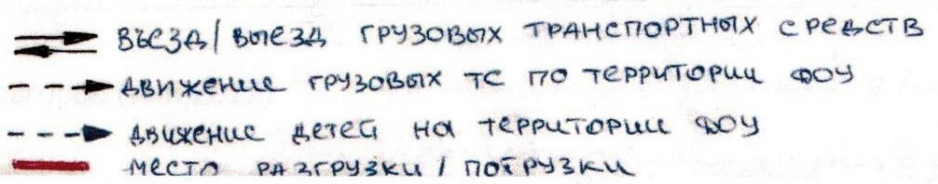 ВЪЕЗД/ВЫЕЗД ГРУЗОВЫХ ТРАНСПОРТНЫХ СРЕДСТВ
ДВИЖЕНИЕ ГРУЗОВЫХ ТС ПО ТЕРРИТОРИИ ДОУ
ДВИЖЕНИЕ ДЕТЕЙ НА ТЕРРИТОРИИ ДОУ
МЕСТО РАЗГРУЗКИ / ПОГРУЗКИ